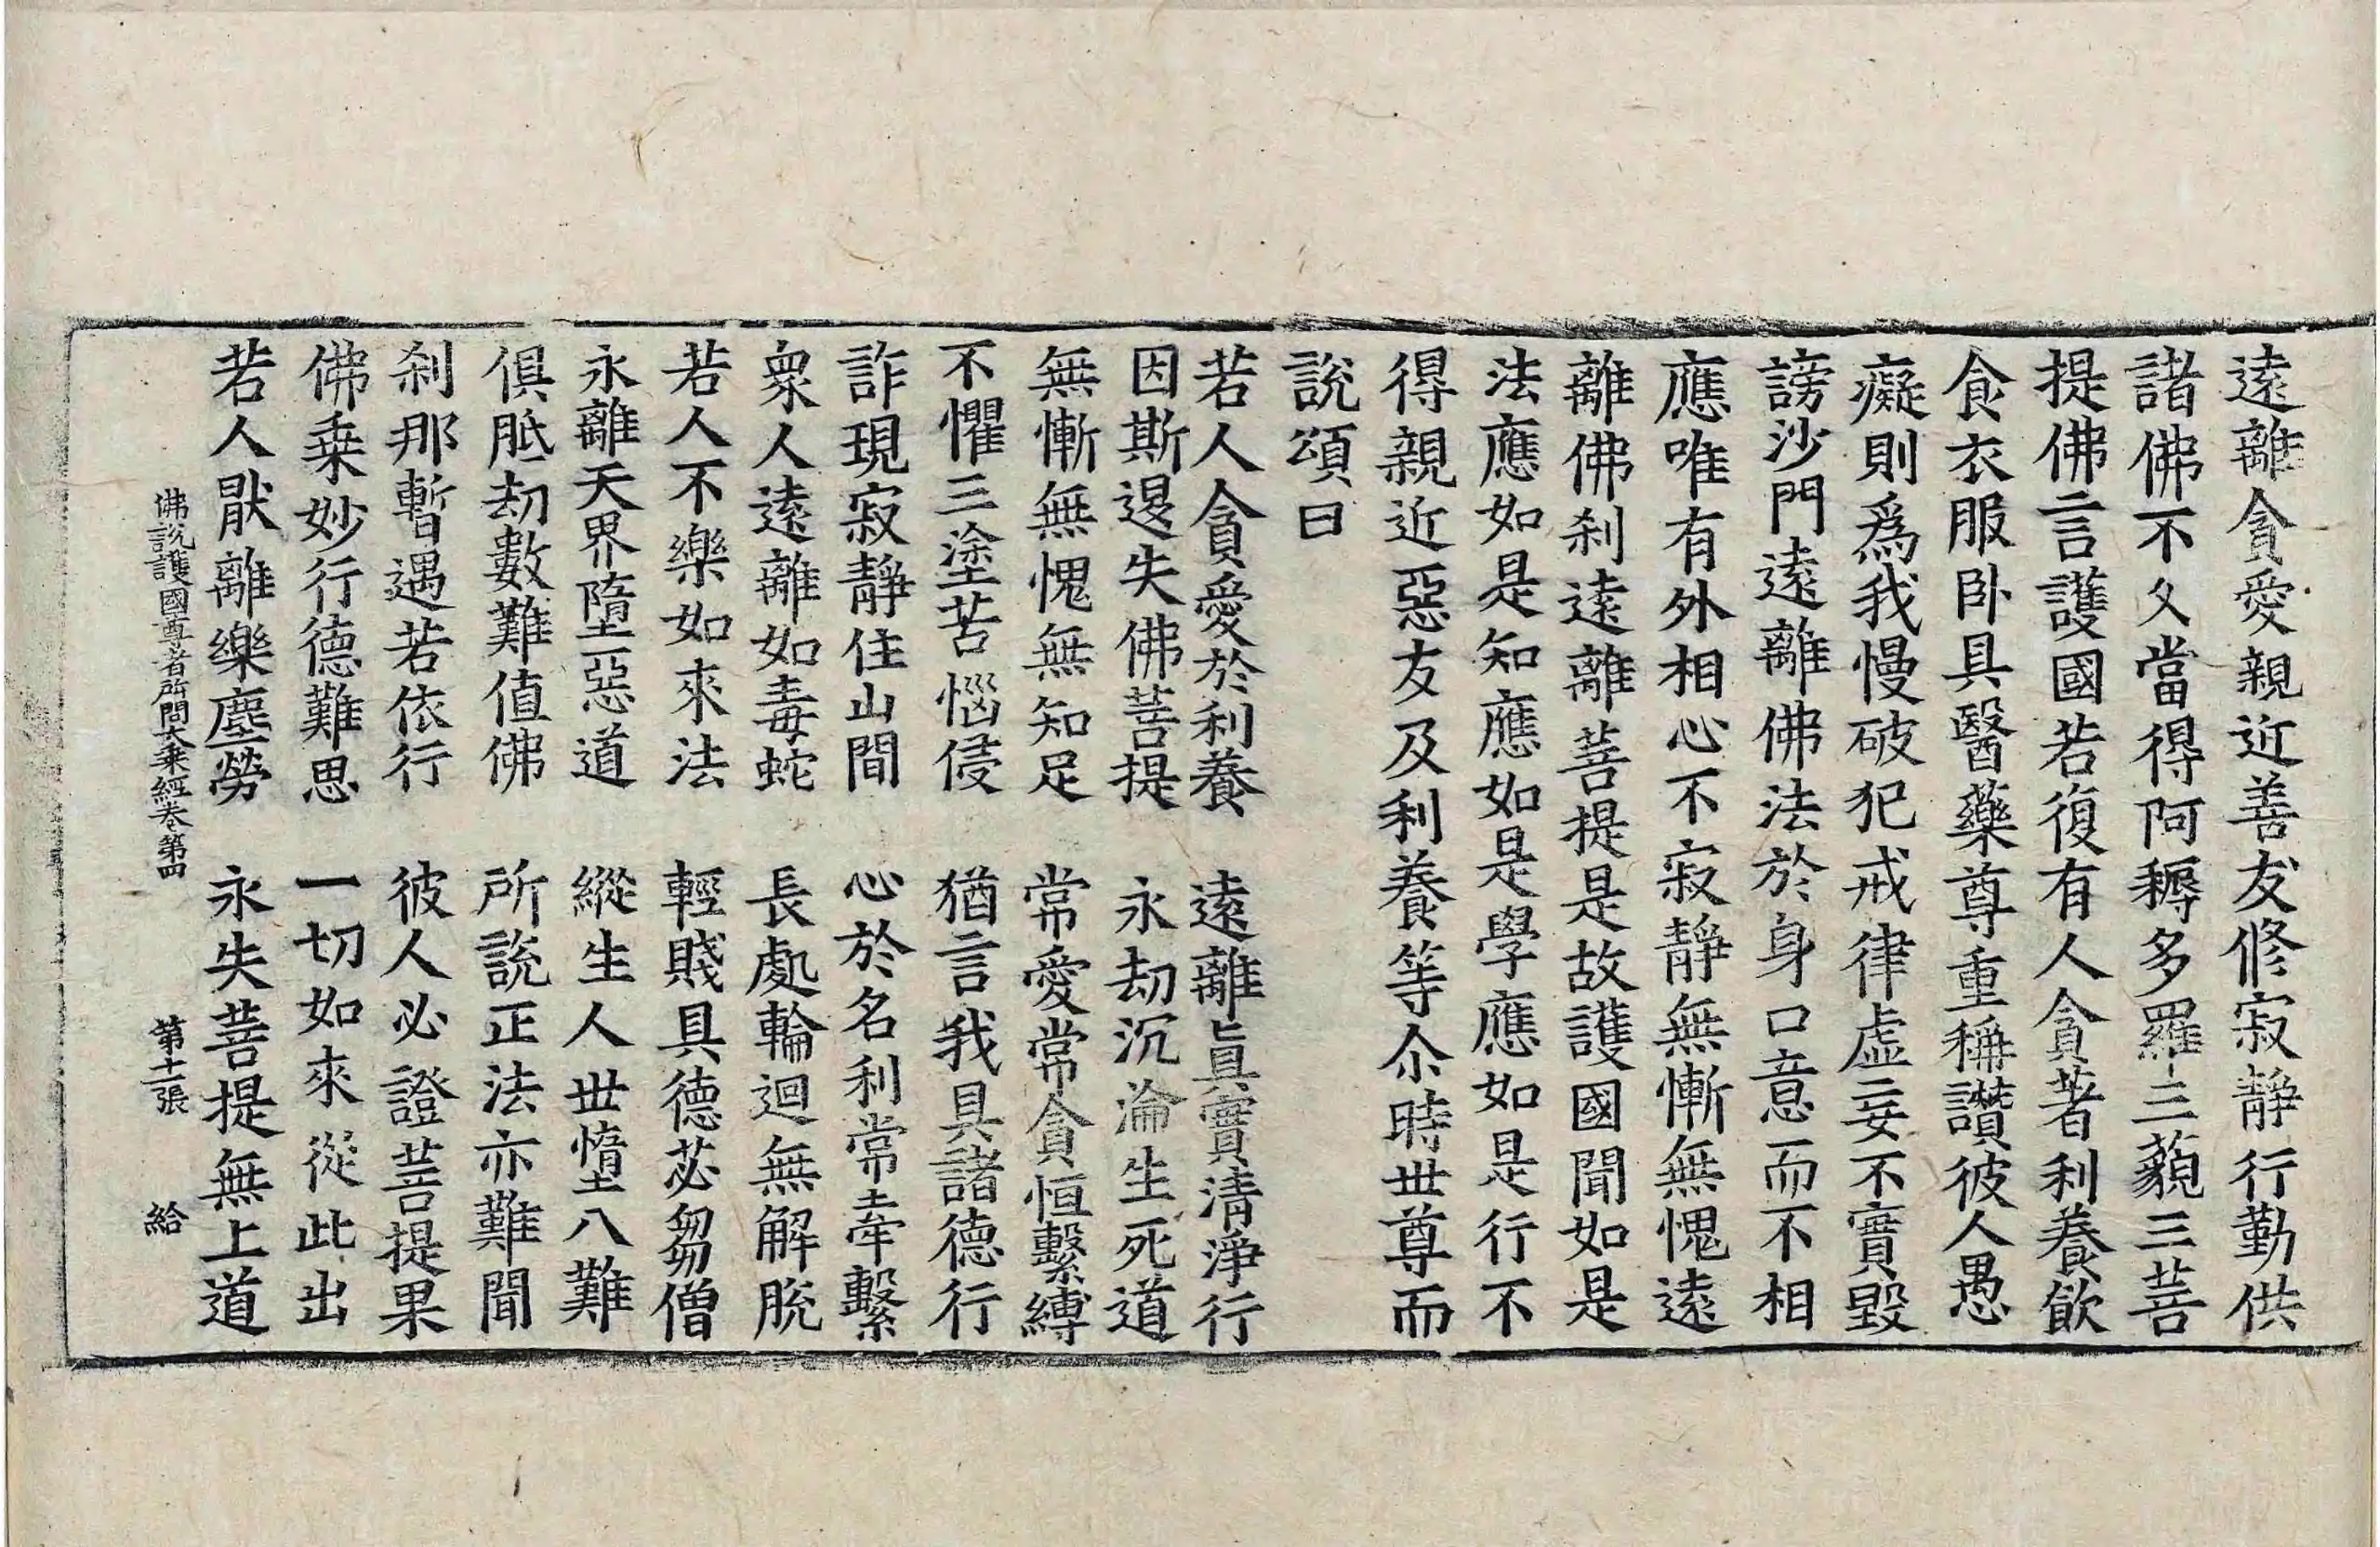 遠離貪愛親近善友修寂静行勤供
諸佛不久當得阿耨多羅三藐三菩
提佛言護國若復有人貪著利養飲
食衣服卧具醫藥尊重稱讚彼人愚
癡則爲我慢破犯戒律虛妄不實毀
謗沙門遠離佛法於身口意而不相
應唯有外相心不寂静無慚無愧遠
離佛刹遠離菩提是故護國聞如是
法應如是知應如是學應如是行不
得親近惡友及利養等尒時世尊而
說頌曰
若人貪愛於利養　遠離眞實清淨行
因斯退失佛菩提　永劫沉淪生死道
無慚無愧無知足　常愛常貪恒繫縛
不懼三塗苦惱侵　猶言我具諸德行
詐現寂静住山間　心於名利常牽繫
衆人遠離如毒蛇　長處輪迴無解脫
若人不樂如來法　輕賤具德苾芻僧
永離天界墮惡道　縱生人世墮八難
俱胝劫數難值佛　所說正法亦難聞
刹那暫遇若依行　彼人必證菩提果
佛乗妙行德難思　一切如來從此出
若人猒離樂塵勞　永失菩提無上道
佛說護國尊者所問大乗經卷第四　第十二張　給